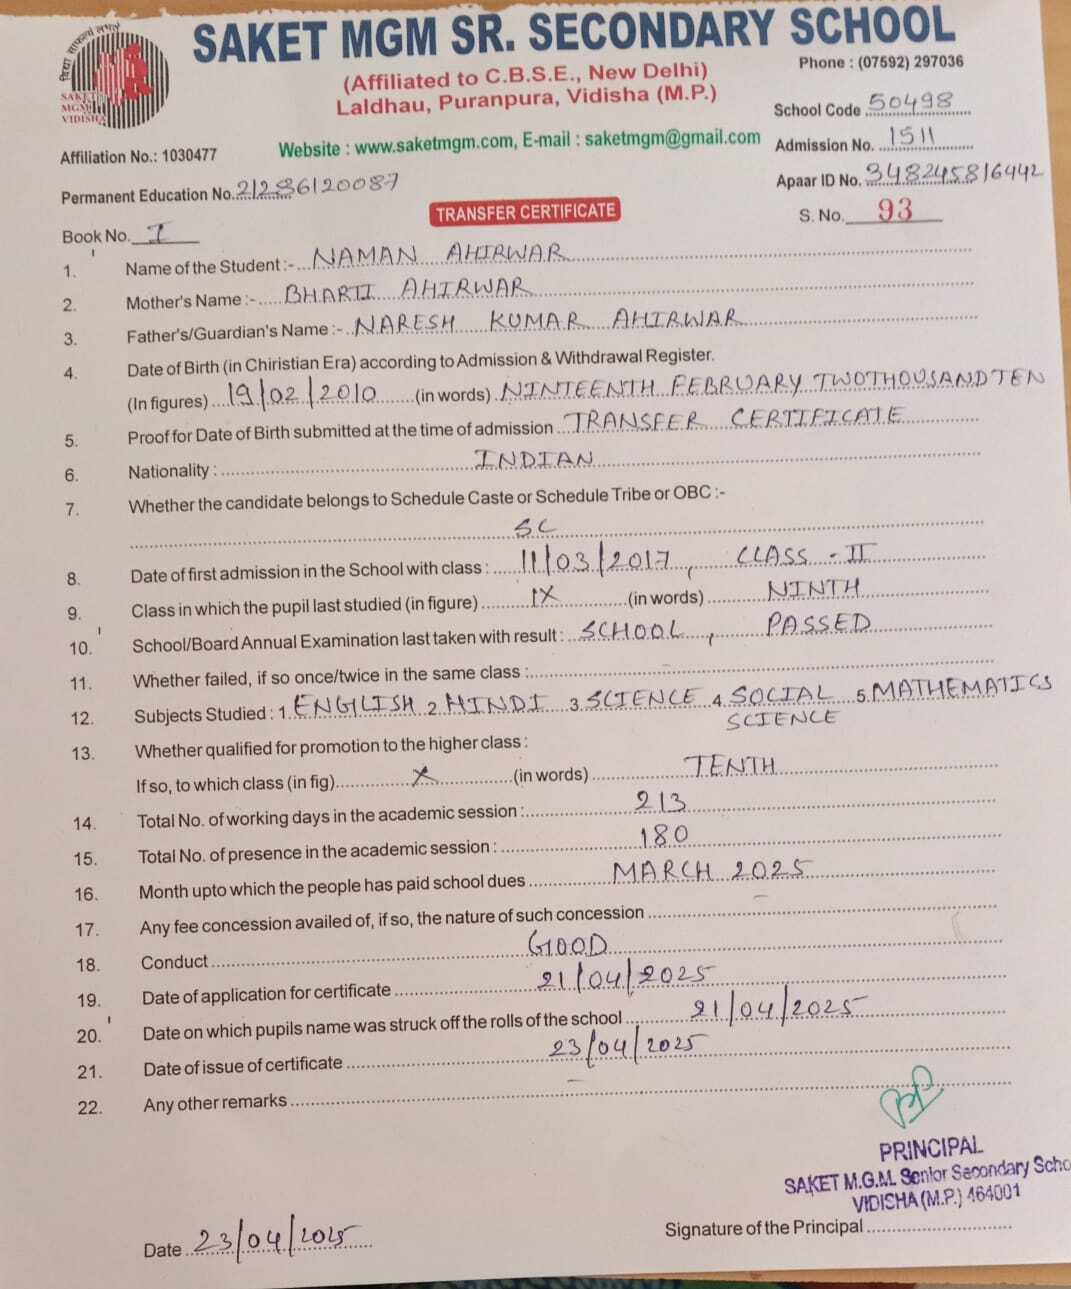 विद्या साफल्यं लभते
SAKET
MGM
VIDISHA
SAKET MGM SR. SECONDARY SCHOOL
(Affiliated to C.B.S.E., New Delhi)
Laldhau, Puranpura, Vidisha (M.P.)
Phone : (07592) 297036
School Code 50498
Affiliation No.: 1030477
Website : www.saketmgm.com, E-mail : saketmgm@gmail.com
Admission No. 1511
Permanent Education No. 21286120087
Apaar ID No. 348245816442
TRANSFER CERTIFICATE
S. No. 93
Book No. I
1. Name of the Student :- NAMAN AHIRWAR
2. Mother's Name :- BHARTI AHIRWAR
3. Father's/Guardian's Name :- NARESH KUMAR AHIRWAR
4. Date of Birth (in Chiristian Era) according to Admission & Withdrawal Register.
(In figures) 19/02/2010 (in words) NINTEENTH FEBRUARY TWOTHOUSANDTEN
5. Proof for Date of Birth submitted at the time of admission TRANSFER CERTIFICATE
6. Nationality : INDIAN
7. Whether the candidate belongs to Schedule Caste or Schedule Tribe or OBC :-
SC
8. Date of first admission in the School with class : 11/03/2017, CLASS - II
9. Class in which the pupil last studied (in figure) IX (in words) NINTH
10. School/Board Annual Examination last taken with result : SCHOOL, PASSED
11. Whether failed, if so once/twice in the same class :
12. Subjects Studied : 1. ENGLISH 2. HINDI 3. SCIENCE 4. SOCIAL 5. MATHEMATICS
SCIENCE
13. Whether qualified for promotion to the higher class :
If so, to which class (in fig) X (in words) TENTH
14. Total No. of working days in the academic session : 213
15. Total No. of presence in the academic session : 180
16. Month upto which the people has paid school dues MARCH 2025
17. Any fee concession availed of, if so, the nature of such concession -
18. Conduct GOOD
19. Date of application for certificate 21/04/2025
20. Date on which pupils name was struck off the rolls of the school 21/04/2025
21. Date of issue of certificate 23/04/2025
22. Any other remarks -
PRINCIPAL
SAKET M.G.M. Senior Secondary Scho
VIDISHA (M.P.) 464001
Signature of the Principal
Date 23/04/2025